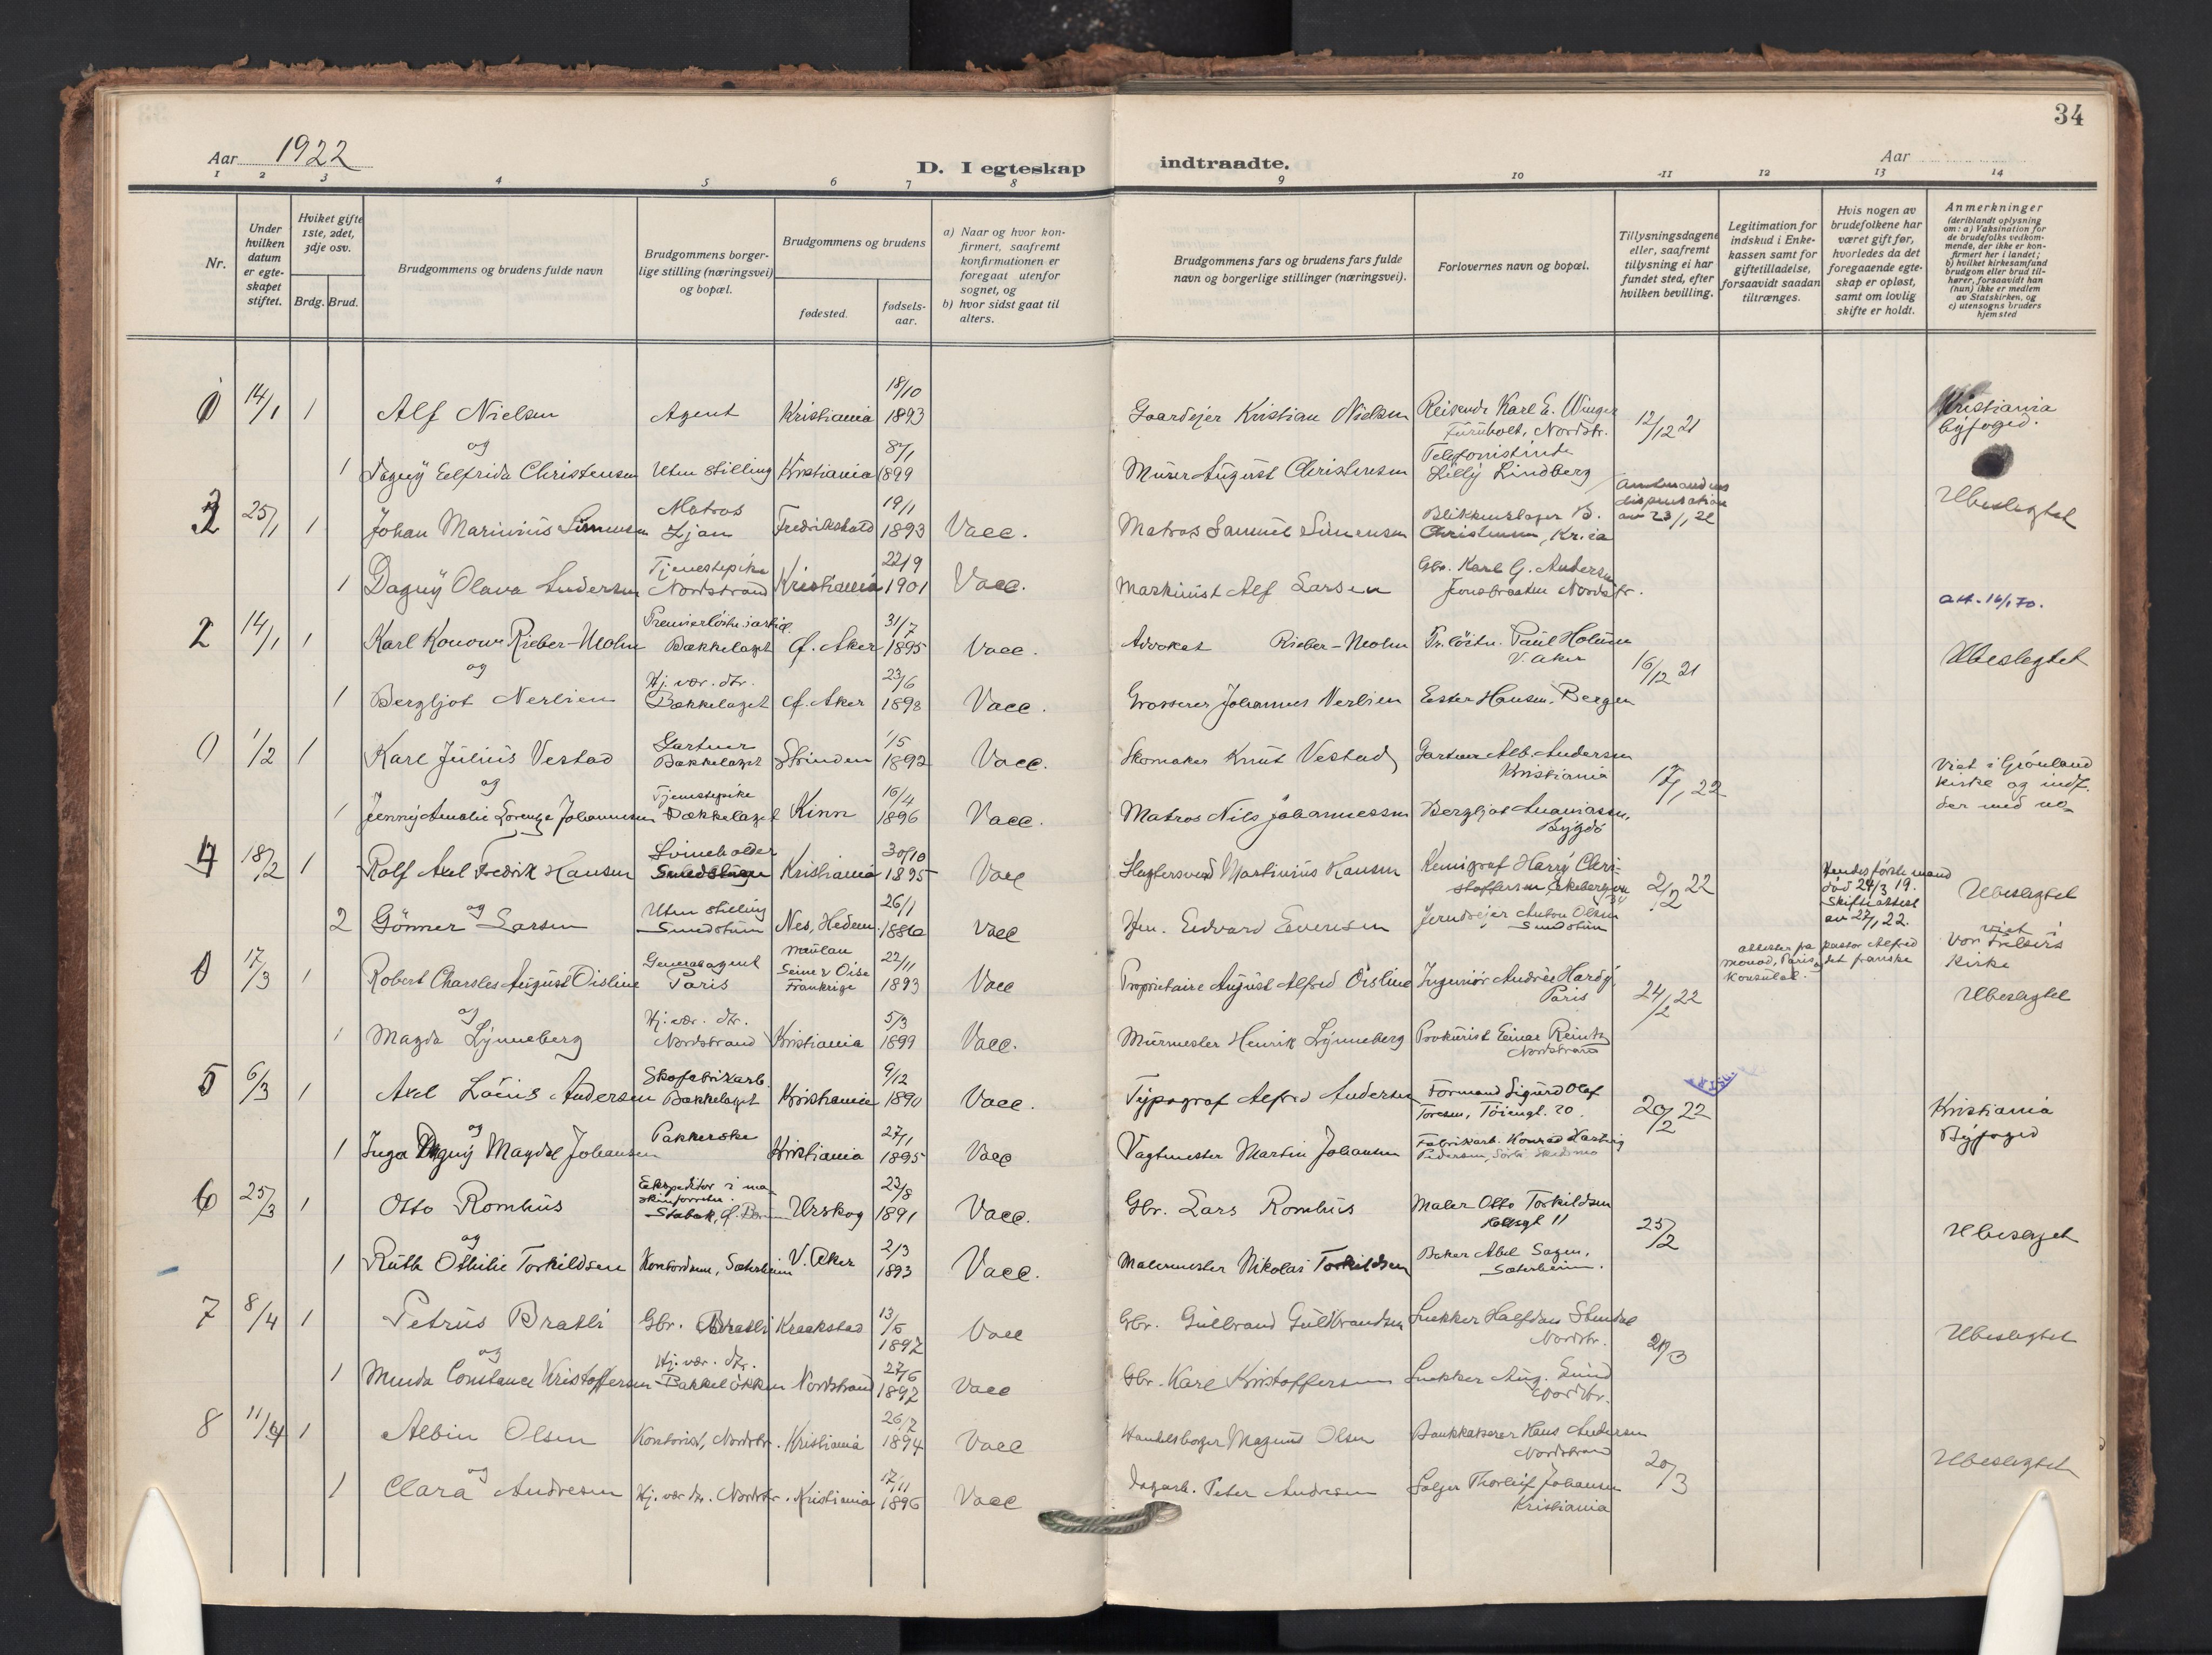 34
Aar 1922
D. I egteskap indtraadte.
Aar
1 2 3 4 5 6 7 8 9 10 11 12 13 14
Nr.
Under hvilken datum er egteskapet stiftet.
Hviket gifte 1ste, 2det, 3dje osv.
Brdg. Brud.
Brudgommens og brudens fulde navn
Brudgommens borgerlige stilling (næringsvei) og bopæl.
Brudgommens og brudens
fødested.
fødselsaar.
a) Naar og hvor konfirmert, saafremt konfirmationen er foregaat utenfor sognet, og
b) hvor sidst gaat til alters.
Brudgommens fars og brudens fars fulde navn og borgerlige stillinger (næringsvei).
Forlovernes navn og bopæl.
Tillysningsdagene eller, saafremt tillysning ei har fundet sted, efter hvilken bevilling.
Legitimation for indskud i Enkekassen samt for giftetilladelse, forsaavidt saadan tiltrænges.
Hvis nogen av brudefolkene har været gift før, hvorledes da det foregaaende egteskap er opløst, samt om lovlig skifte er holdt.
Anmerkninger
(deriblandt oplysning om: a) Vaksination for de brudefolks vedkommende, der ikke er konfirmert her i landet; b) hvilket kirkesamfund brudgom eller brud tilhører, forsaavidt han (hun) ikke er medlem av Statskirken, og c) utensogns bruders hjemsted
14/1 1 Alf Nielsen Agent Kristiania 18/10 1893 Gaardejer Kristian Nielsen Reisende Karl E. Winger Furuholt, Nordstr. 12/12 21 Kristiania byfoged.
og
1 Dagny Elfrida Christensen Uten stilling Kristiania 8/1 1899 Murer August Christensen Telefonistinde Lilly Lindberg
25/1 1 Johan Marinius Simensen Matros Ljan Fredrikstad 19/1 1893 Vacc. Matros Samuel Simensen Blikkenslager B. Christensen, Kr.ia Amtmandens dispensation av 23/1 22 Ubeslegtet
1 Dagny Olava Andersen Tjenestepike Nordstrand Kristiania 22/9 1901 Vacc. Maskinist Alf Larsen Gbr. Karl G. Andersen Jernsbraaten Nordstr.
att. 16/1 70.
2 14/1 1 Karl Konow Rieber-Mohn Premierløitn. i artil. Bækkelaget Ø. Aker 31/7 1895 Vacc. Advokat Rieber-Mohn Pr. løitn. Paul Holum V. Aker 16/12 21 Ubeslegtet
og
1 Bergljot Nerlien Hj. vær. dtr. Bækkelaget Ø. Aker 23/6 1898 Vacc. Grosserer Johannes Nerlien Ester Hansen, Bergen
0 1/2 1 Karl Julius Vestad Gartner Bækkelaget Strinden 1/5 1892 Vacc. Skomaker Knut Vestad Gartner Alb. Andersen Kristiania 17/1 22 Viet i Grönland kirke og indf. der med no
og
1 Jenny Amalie Lorentze Johannessen Tjenestepike Bækkelaget Kinn 16/4 1896 Vacc. Matros Nils Johannessen Bergljot Ananiassen, Bygdö
4 18/2 1 Rolf Axel Fredrik Hansen Svineholder Kristiania 30/10 1895 Vacc Slagtersvend Martinius Hansen Kemigraf Harry Christoffersen Ekebergvn 34 2/2 22 Hendes förste mand död 24/3 19. Skifteattest av 27/1 22. Ubeslegtet
og
2 Gönner Larsen Uten stilling Nes, Hedem. 26/1 1886 Vacc Hm. Edvard Evensen Jerndreier Anton Olsen
0 17/3 1 Robert Charsles August Oisline Generalagent Paris Meulan Seine & Oise Frankrige 22/11 1893 Vacc Proprietaire August Alfred Oisline Ingeniör Andrée Hardy, Paris 24/2 22 attester fra pastor Alfred Monod, Paris og det franske Konsulat. viet i Vor Frelsers Kirke Ubeslegtet
og
1 Magda Lynneberg Hj. vær. dtr. Nordstrand Kristiania 5/3 1899 Vacc. Murmester Henrik Lynneberg Prokurist Einar Reintz Nordstrand
5 6/3 1 Axel Louis Andersen Skofabrikarb. Bækkelaget Kristiania 9/12 1890 Vacc. Typograf Alfred Andersen Formand Sigurd Olaf Toresen, Töiengt. 20. 20/2 22 Kristiania Byfoged
og
1 Inga Dagny Magdal Johansen Pakkerske Kristiania 27/1 1895 Vacc Vagtmester Martin Johansen Fabrikarb. Konrad Hartvig Pedersen, Sörli Skedsmo
6 25/3 1 Otto Romhus Ekspeditör i maskinforretn. Stabæk, Ø. Bærum Urskog 23/8 1891 Vacc. Gbr. Lars Romhus Maler Otto Torkildsen 11 25/2 Ubeslegtet
og
1 Ruth Ottilie Torkildsen Kontordame, Sæterheim V. Aker 2/3 1893 Vacc. Malermester Nikolai Torkildsen Baker Abel Sagen, Sæterheim.
7 8/4 1 Petrus Bratli Gbr. Bratli Kraakstad 13/5 1892 Vacc Gbr. Gulbrand Guldbrandsen Snekker Halfdan Stendal Nordstr. 20/3 Ubeslegtet
og
1 Minda Constance Kristoffersen Hj. vær. dtr. Bakkelökken Nordstrand 27/6 1892 Vacc Gbr. Karl Kristoffersen Snekker Aug. Lund Nordstr.
8 11/4 1 Albin Olsen Kontorist, Nordstr. Kristiania 26/7 1894 Vacc Handelsborger Magnus Olsen Bankkasserer Hans Andersen Nordstrand 20/3 Ubeslegtet
og
1 Clara Andresen Hj. vær. dtr. Nordstr. Kristiania 17/11 1896 Vacc Dagarb. Peter Andresen Selger Thorleif Johansen Kristiania